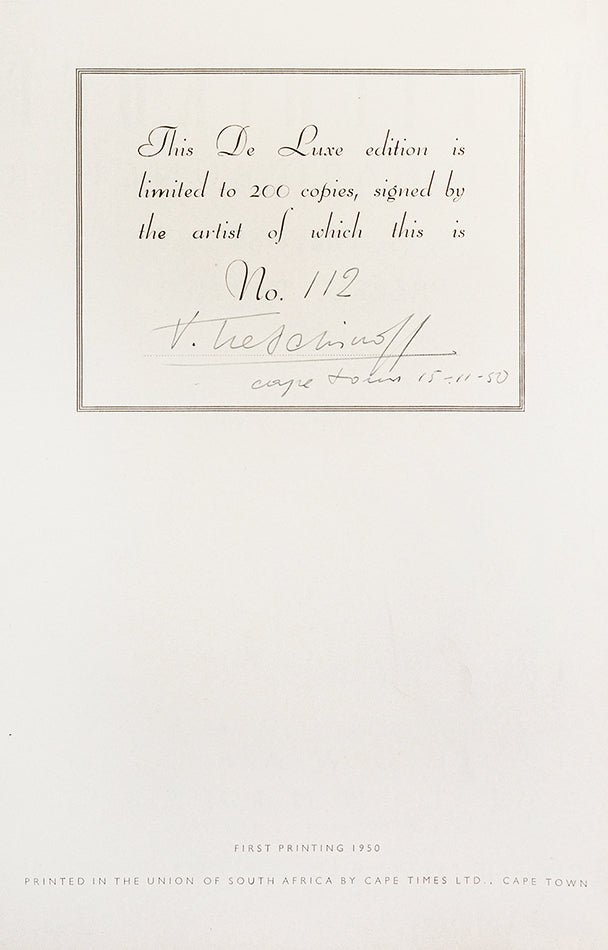 This De Luxe edition is
limited to 200 copies, signed by
the artist of which this is
No. 112
V. Tretschikoff
cape town 15-11-50
FIRST PRINTING 1950
PRINTED IN THE UNION OF SOUTH AFRICA BY CAPE TIMES LTD., CAPE TOWN